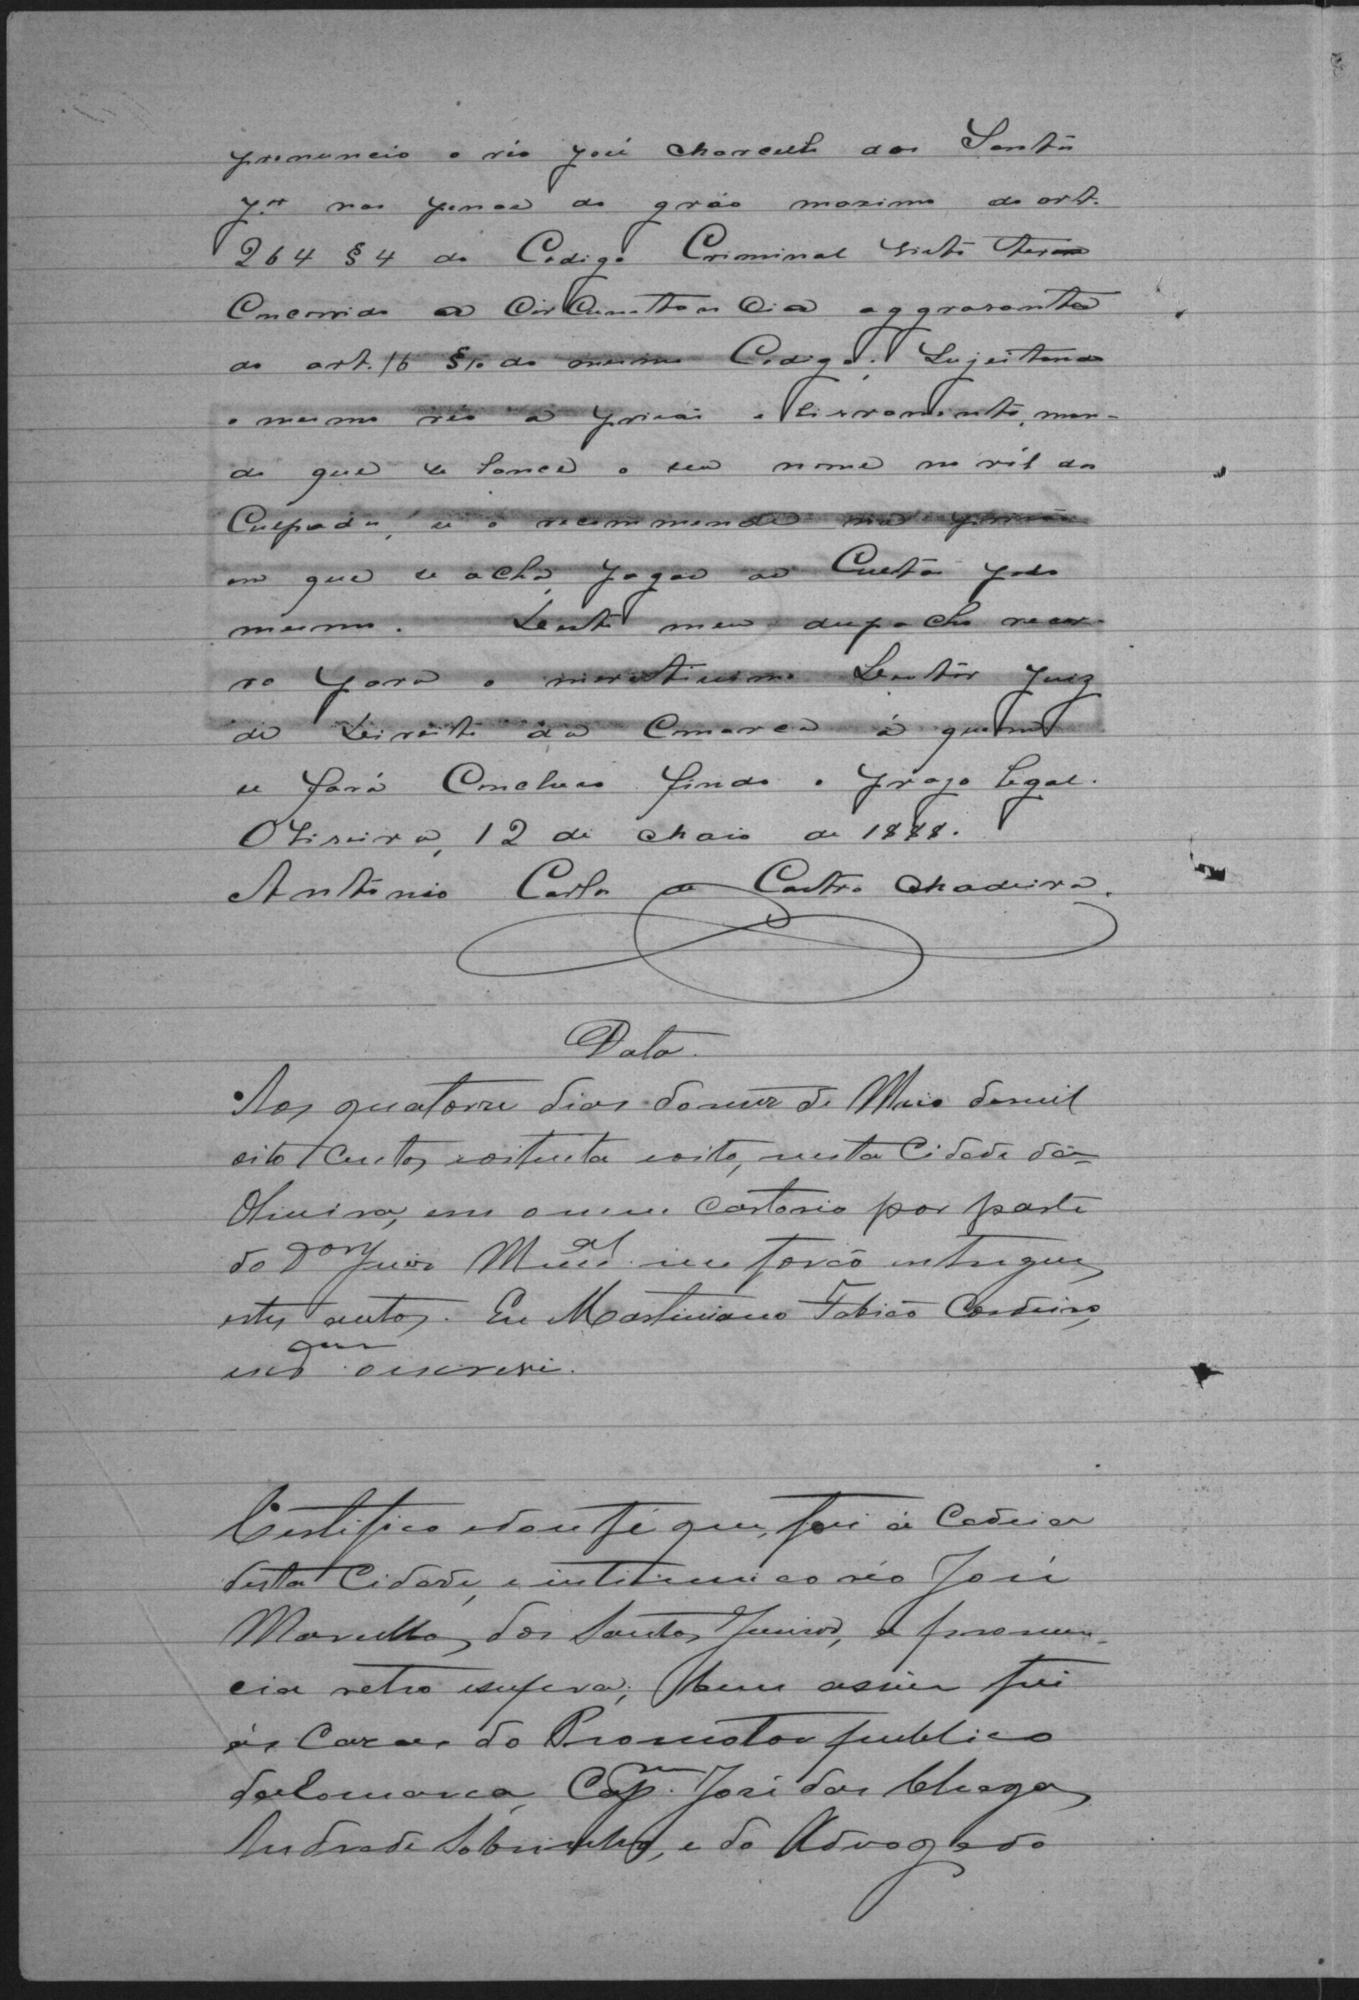 pronuncio o réo José Marcello dos Santos
J.or nas penas do gráo maximo do art.
264 § 4 do Codigo Criminal visto ter
concorrido a circumstancia aggravante
do art. 16 § 1o do mesmo Codigo. Sujeitando
o mesmo réo a prisão e livramento, man-
do que se lance o seu nome no ról dos
Culpados, e se o recommende na prisão
em que se acha, pagas as Custas pelo
mesmo. Deste meu despacho recor-
ro para o meretissimo Doutor Juiz
de Direito da Comarca á quem
se fará Concluso findo o prazo legal.
Oliveira, 12 de Maio de 1888.
Antonio Carlos de Castro Madeira.
Data.
Aos quatorze dias do mez de Maio de mil
oito centos e oitenta e oito, nesta Cidade da
Oliveira, em o meu Cartorio por parte
do Dor Juiz Munal. me forão entregues
estes autos. Eu Martiniano Fabião Cordeiro,
escam o escrevi.
Certifico e dou fé que, fui á Cadeia
desta Cidade, e intimei ao réo José
Marcellos dos Santos Junior, a pronun-
cia retro e supra; bem assim fui
ás Casas do Promotor publico
da Comarca, Capm. José das Chagas
Andrade Sobrinho, e do Advogado